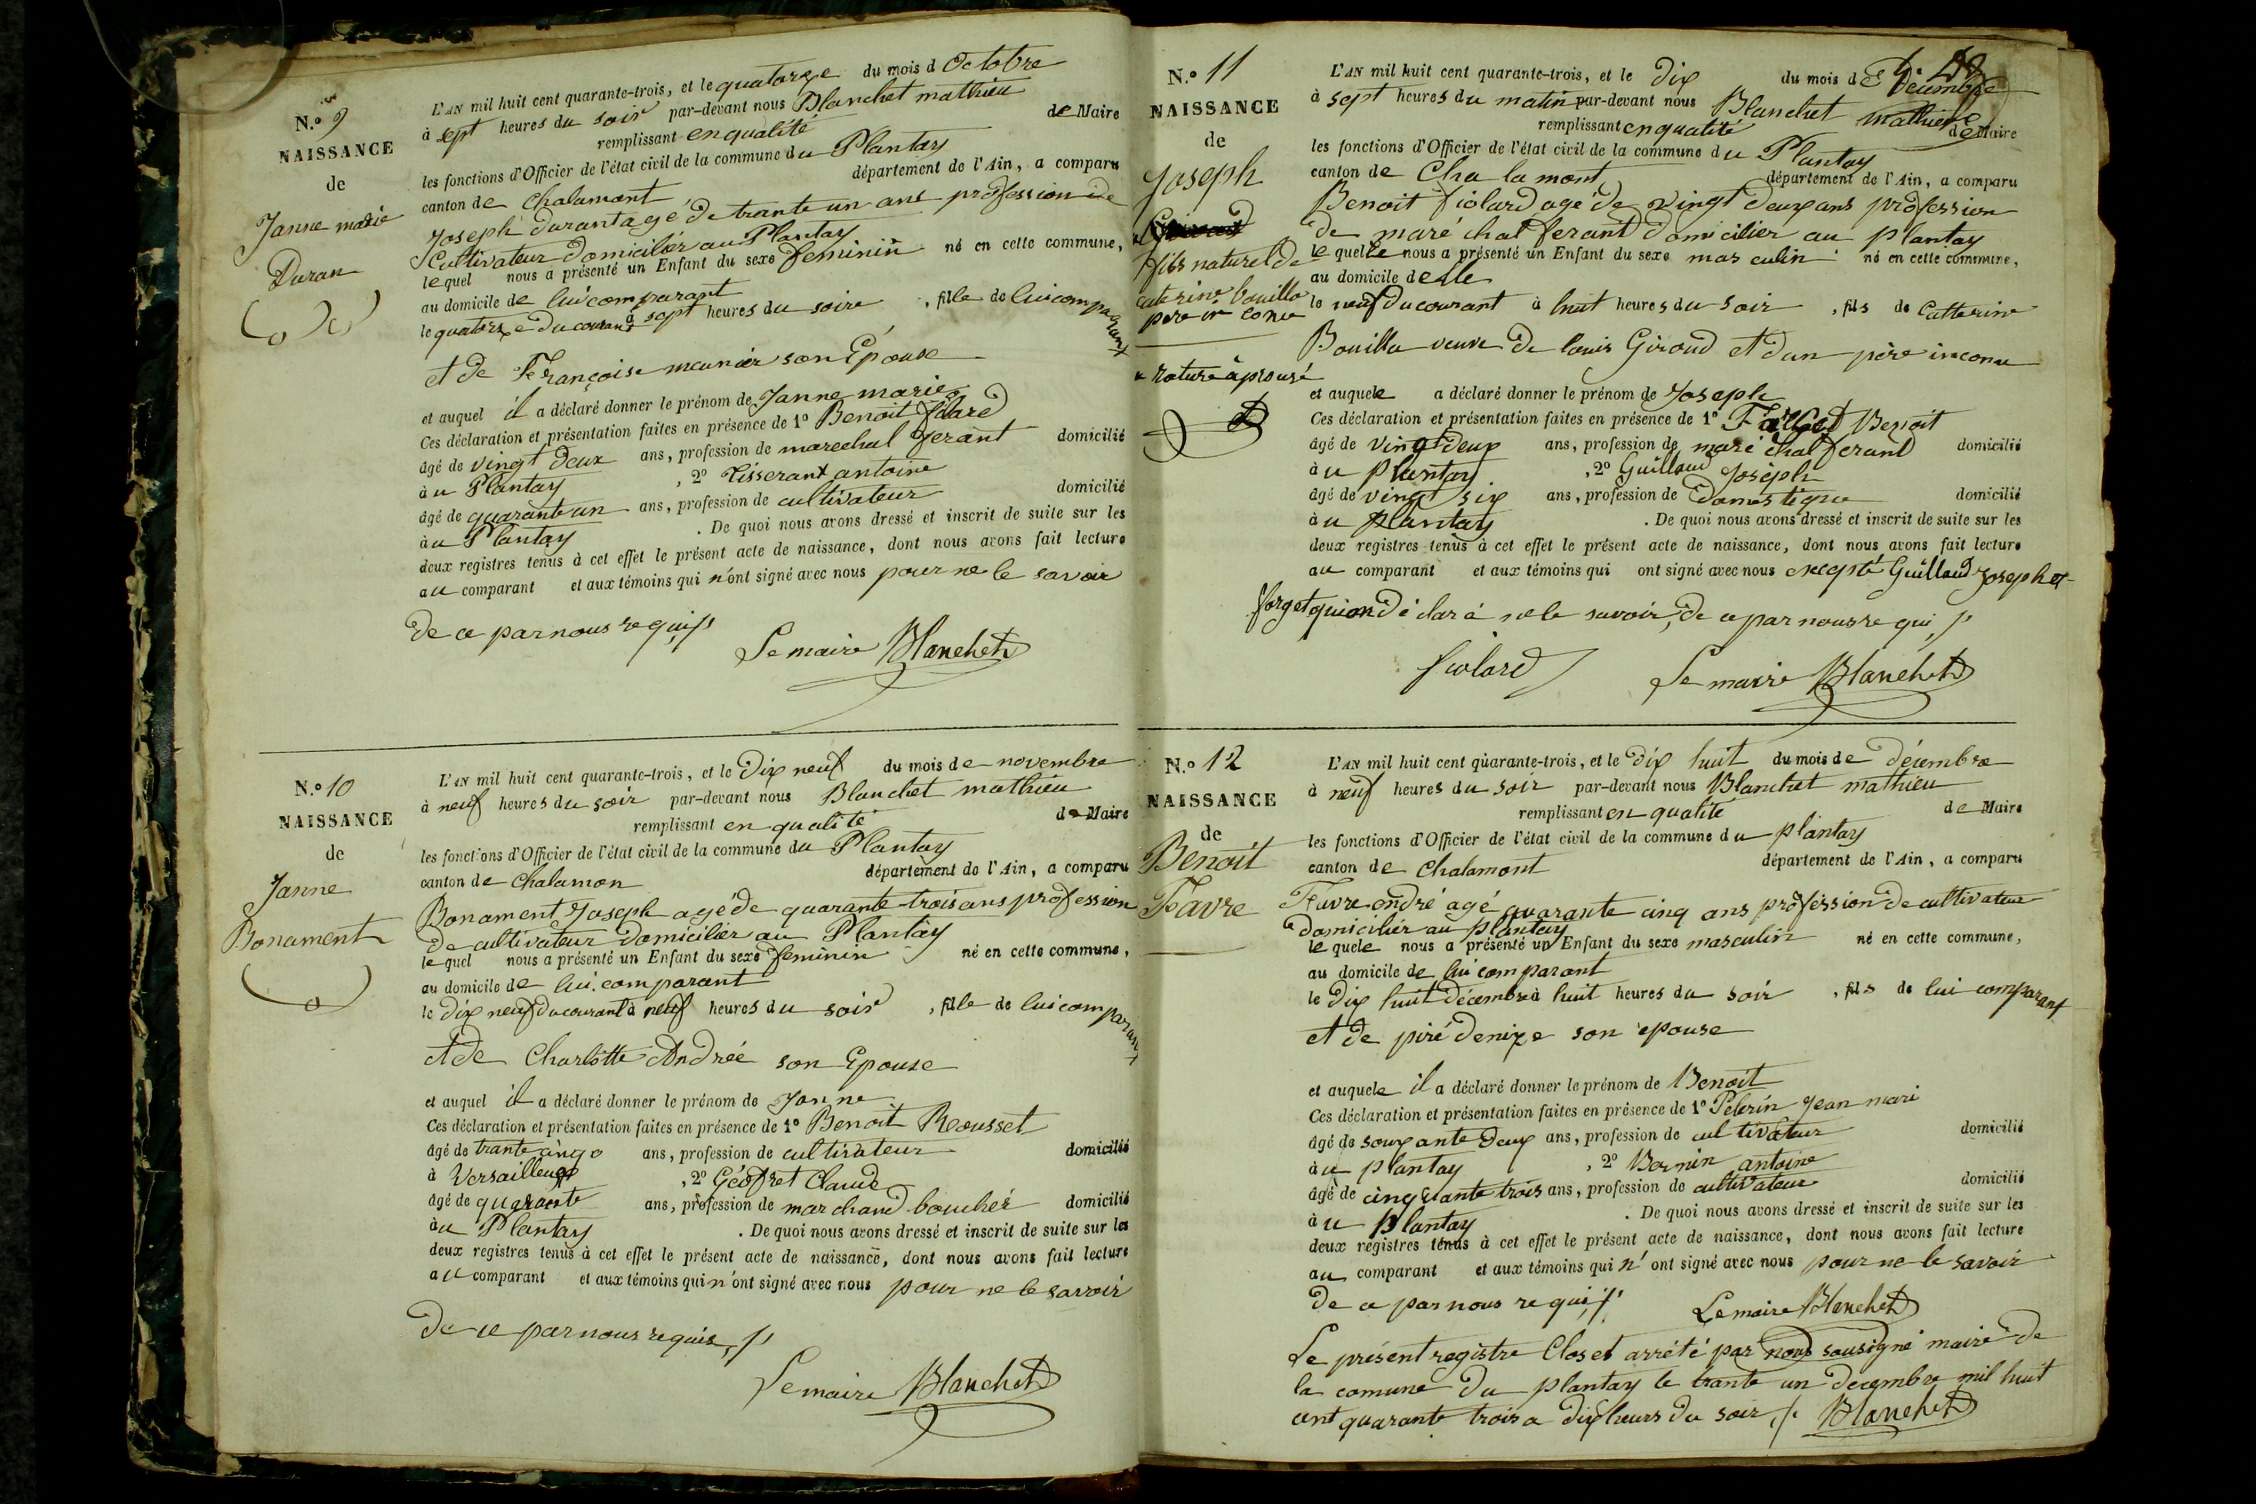 N.o 9
NAISSANCE
de
Janne marie
Duran
L'AN mil huit cent quarante-trois, et le quatorze du mois d Octobre
à sept heures du soir par-devant nous Blanchet mathieu
remplissant en qualité de Maire
les fonctions d'Officier de l'état civil de la commune du Plantay
canton de Chalamont département de l'Ain, a comparu
Joseph durant agé de trante un ans profession de
Cultivateur domicilier au Plantay
lequel nous a présenté un Enfant du sexe feminin né en cette commune,
au domicile de lui comparant
le quatorze du courant à sept heures du soire , fille de lui comparant
et de Françoise meunier son Épouse
et auquel il a déclaré donner le prénom de Janne marie
Ces déclaration et présentation faites en présence de 1o Benoit fiolard
âgé de vingt deux ans, profession de marechal ferant domicilié
à u Plantay , 2o Tisserant antoine
âgé de quarante un ans, profession de cultivateur domicilié
à u Plantay . De quoi nous avons dressé et inscrit de suite sur les
deux registres tenus à cet effet le présent acte de naissance, dont nous avons fait lecture
au comparant et aux témoins qui n'ont signé avec nous pour ne le savoir
de ce par nous requis
Le maire Blanchet
N.o 10
NAISSANCE
de
Janne
Bonament
L'AN mil huit cent quarante-trois, et le dix neuf du mois de novembre
à neuf heures du soir par-devant nous Blanchet mathieu
remplissant en qualité de Maire
les fonctions d'Officier de l'état civil de la commune du Plantay
canton de chalamon département de l'Ain, a comparu
Bonament Joseph agé de quarante trois ans profession
de cultivateur domicilier au Plantay
le quel nous a présenté un Enfant du sexe feminin né en cette commune,
au domicile de lui comparant
le dix neuf du courant à neuf heures du soir , fille de lui comparant
et de Charlotte Andrée son Epouse
et auquel il a déclaré donner le prénom de Janne
Ces déclaration et présentation faites en présence de 1o Benoit Rousset
âgé de trante ans, profession de cultivateur domicilié
à Versailleux , 2o Géofret Claude
âgé de quarante ans, profession de marchand boucher domicilié
àu Plantay . De quoi nous avons dressé et inscrit de suite sur les
deux registres tenus à cet effet le présent acte de naissance, dont nous avons fait lecture
au comparant et aux témoins qui n'ont signé avec nous pour ne le savoir
de ce par nous requis
Le maire Blanchet
N.o 11
NAISSANCE
de
Joseph
fils naturel de
caterine bouilla
pere in conu
rature aprouvé
L'AN mil huit cent quarante-trois, et le dix du mois de Décembre
à sept heures du matin par-devant nous Blanchet mathieu
remplissant en qualité de Maire
les fonctions d'Officier de l'état civil de la commune du Plantay
canton de Cha la mont département de l'Ain, a comparu
Benoit fiolard agé de vingt deux ans profession
de maré chal ferant domicilier au plantay
le quelle nous a présenté un Enfant du sexe mas culin né en cette commune,
au domicile de elle
le neuf du courant à huit heures du soir , fils de Catterine
Bouilla veuve de louis Giroud et dun père inconu
et auquele a déclaré donner le prénom de Joseph
Ces déclaration et présentation faites en présence de 1o Farget Benoit
âgé de vingt deux ans, profession de maré chal ferand domicilié
à u plantay , 2o Guilland Joseph
âgé de vingt six ans, profession de Domestique domicilié
à u plantay . De quoi nous avons dressé et inscrit de suite sur les
deux registres tenus à cet effet le présent acte de naissance, dont nous avons fait lecture
au comparant et aux témoins qui ont signé avec nous excepté Guilland Joseph et
forget qui on dé claré ne le savoir, de ce par nous re qui
fiolard Le maire Blanchet
N.o 12
NAISSANCE
de
Benoit
Favre
L'AN mil huit cent quarante-trois, et le dix huit du mois de décembre
à neuf heures du soir par-devant nous Blanchet mathieu
remplissant en qualité de Maire
les fonctions d'Officier de l'état civil de la commune du plantay
canton de chalamont département de l'Ain, a comparu
Favre andré agé quarante cinq ans profession de cultivateur
domicilier au plantay
le quele nous a présenté un Enfant du sexe masculin né en cette commune,
au domicile de lui comparant
le dix huit décembre à huit heures du soir , fils de lui comparant
et de piré denize son epouse
et auquele il a déclaré donner le prénom de Benoit
Ces déclaration et présentation faites en présence de 1o Pelerin Jean mari
âgé de soux ante deux ans, profession de cul tivateur domicilié
à u plantay , 2o Vernin antoine
âgé de cinquante trois ans, profession de cultivateur domicilié
à u plantay . De quoi nous avons dressé et inscrit de suite sur les
deux registres tenus à cet effet le présent acte de naissance, dont nous avons fait lecture
au comparant et aux témoins qui n'ont signé avec nous pour ne le savoir
de ce par nous re quis
Le maire Blanchet
Le présent registre Clos et arrété par nous sousigné maire de
la comune du plantay le trante un decembre mil huit
cent quarante trois a dix heurs du soir Blanchet